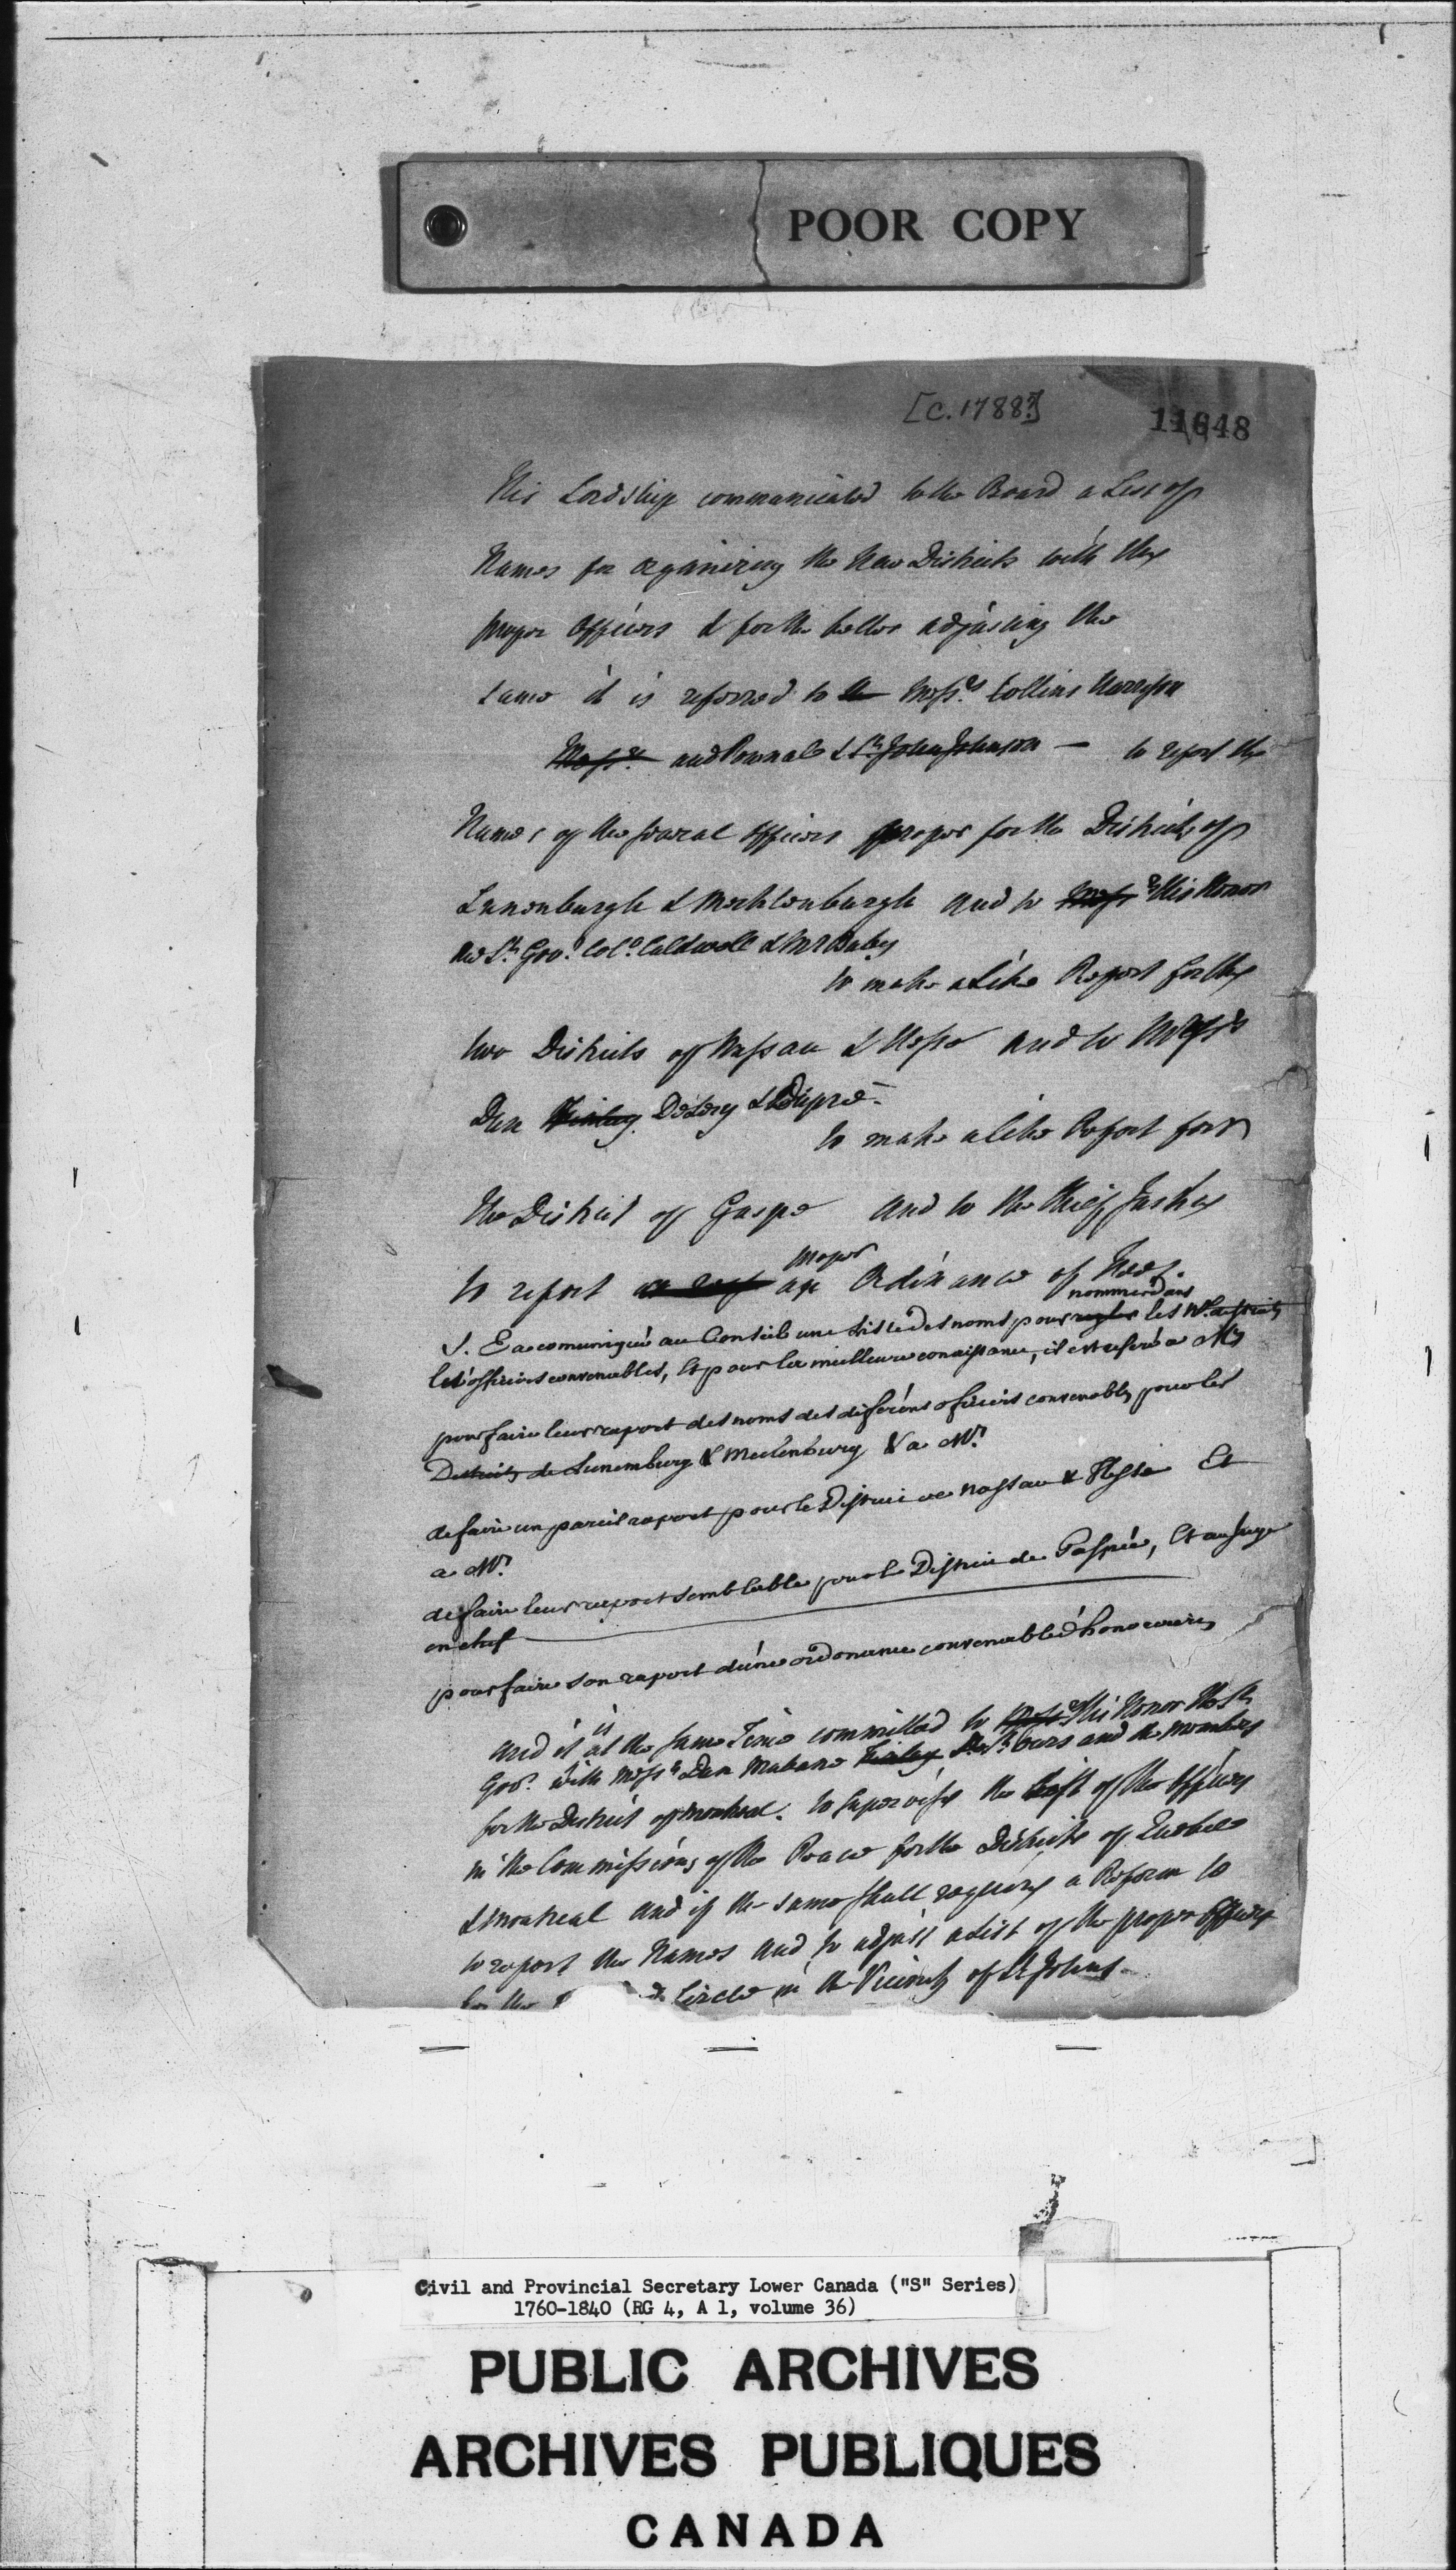 POOR COPY
[C. 1788?]
11648
His Lordship communicated to the Board a List of
Names for organizing the New Districts with the
proper Officers & for the better adjusting the
same it is referred to Messrs Collins Harrison
Messrs and Pownall & Sr John Johnson — to report the
Names of the several Officers proper for the Districts of
Lunenburgh & Mecklenburgh and to Messrs His Honor
the Lt Govr Colo Caldwell & Mr Baby
to make a Like Report for the
two Districts of Nassau & Hesse and to Messrs
Dun Finlay DeLery & Dupré
to make a like Report for
the District of Gaspe and to the Chief Justice
proper
to report an Ordinance of Fees.
nommer dans
S. E a comuniqué au Conseil une Liste des noms pour regler les Nx districts
les officiers convenables, Et pour la meilleure conaissance, il est reféré a Mrs
pour faire leur raport des noms des diférens officiers convenables pour les
Districts de Lunemburg & Meclenburg & a Mrs
de faire un pareil raport pour le District de Nassau & Hesse Et
a Mrs
de faire leur raport semblable pour le District de Gaspée, Et au Juge
en chef
pour faire son raport d'une ordonance convenable d'honoraires
is
and it at the same Time committed to Messrs His Honor the Lt
Govr with Messrs Dun Mabane Finlay and the Members
for the District of Montreal. to supervise the List of the Officers
in the Commissions of the Peace for the Districts of Quebec
& Montreal and if the same shall require a Reform to
to report the Names and to adjust a List of the proper Officers
for the Circle in the Vicinity of St Johns.
Civil and Provincial Secretary Lower Canada ("S" Series)
1760-1840 (RG 4, A 1, volume 36)
PUBLIC ARCHIVES
ARCHIVES PUBLIQUES
CANADA